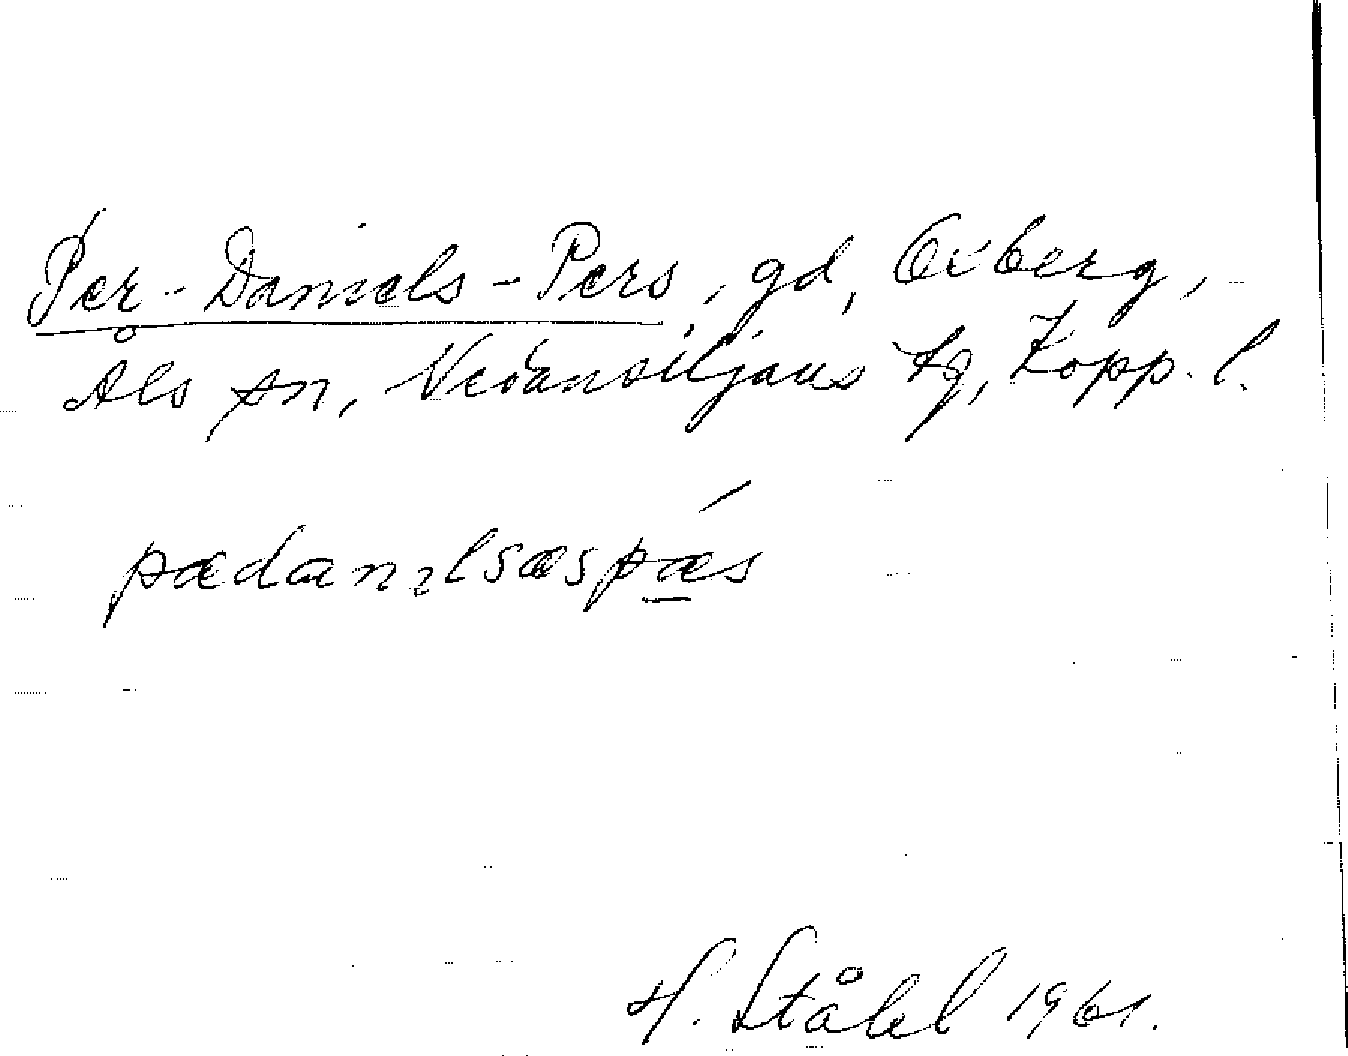 Per-Daniels-Pers, gd, Övberg,
Åls sn, Nedansiljans tg, Kopp. l.
pædanɩlsæspæs
H. Ståhl 1961.